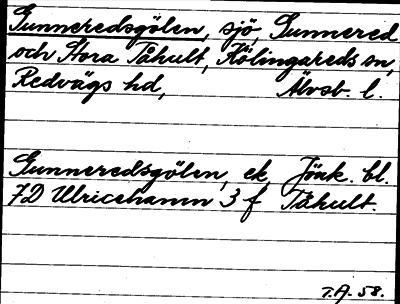 Gunneredsgölen, sjö, Gunnered
och Stora Påhult, Kölingareds sn,
Redvägs hd, Älvsb. l.
Gunneredsgölen, ek. Jönk. bl.
7D Ulricehamn 3 f Påhult.
T.A. 58.